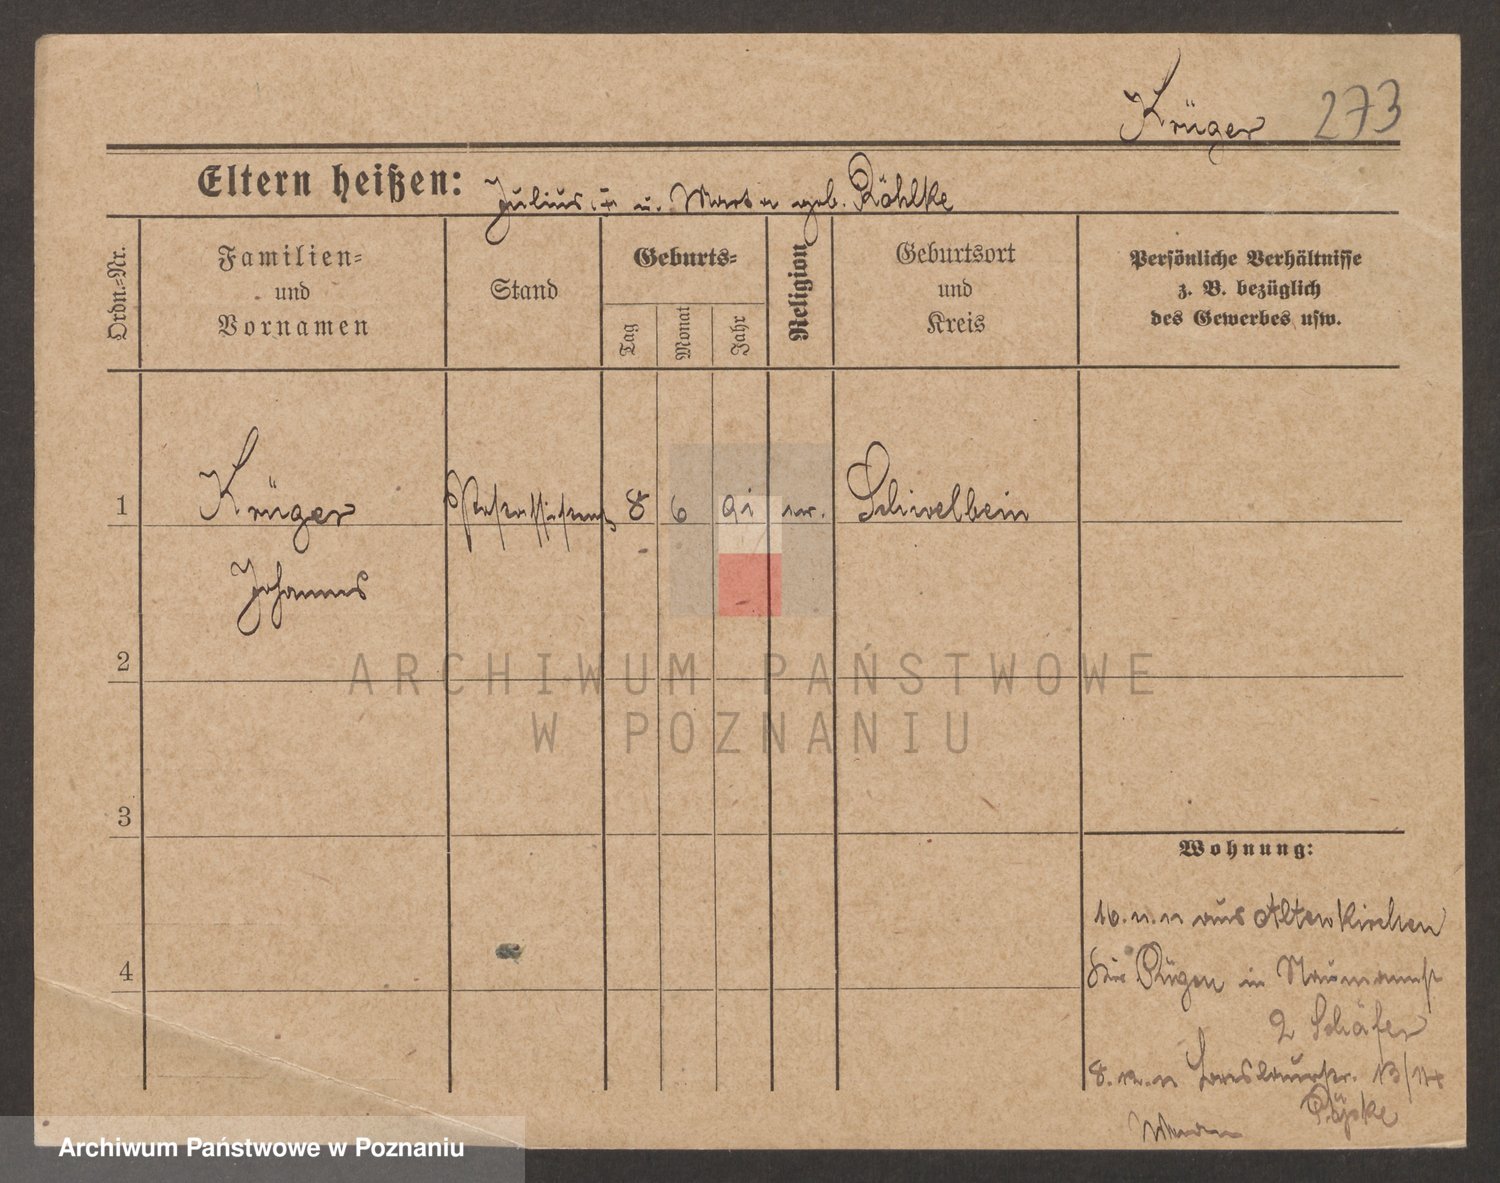 Krüger 273
Eltern heißen: Julius † u. Marta geb. Röhlke
Ordn.=Nr.
Familien=
und
Vornamen
Stand
Geburts=
Tag
Monat
Jahr
Religion
Geburtsort
und
Kreis
Persönliche Verhältnisse
z. B. bezüglich
des Gewerbes usw.
1 Krüger 8 6 91 ev. Schivelbein
Johannes
2
ARCHIWUM PAŃSTWOWE
W POZNANIU
3
Wohnung:
16.11.11 aus Altenkirchen
4
Rügen in Naumannst
2 Schäfer
8.12.11 13/14
Archiwum Państwowe w Poznaniu